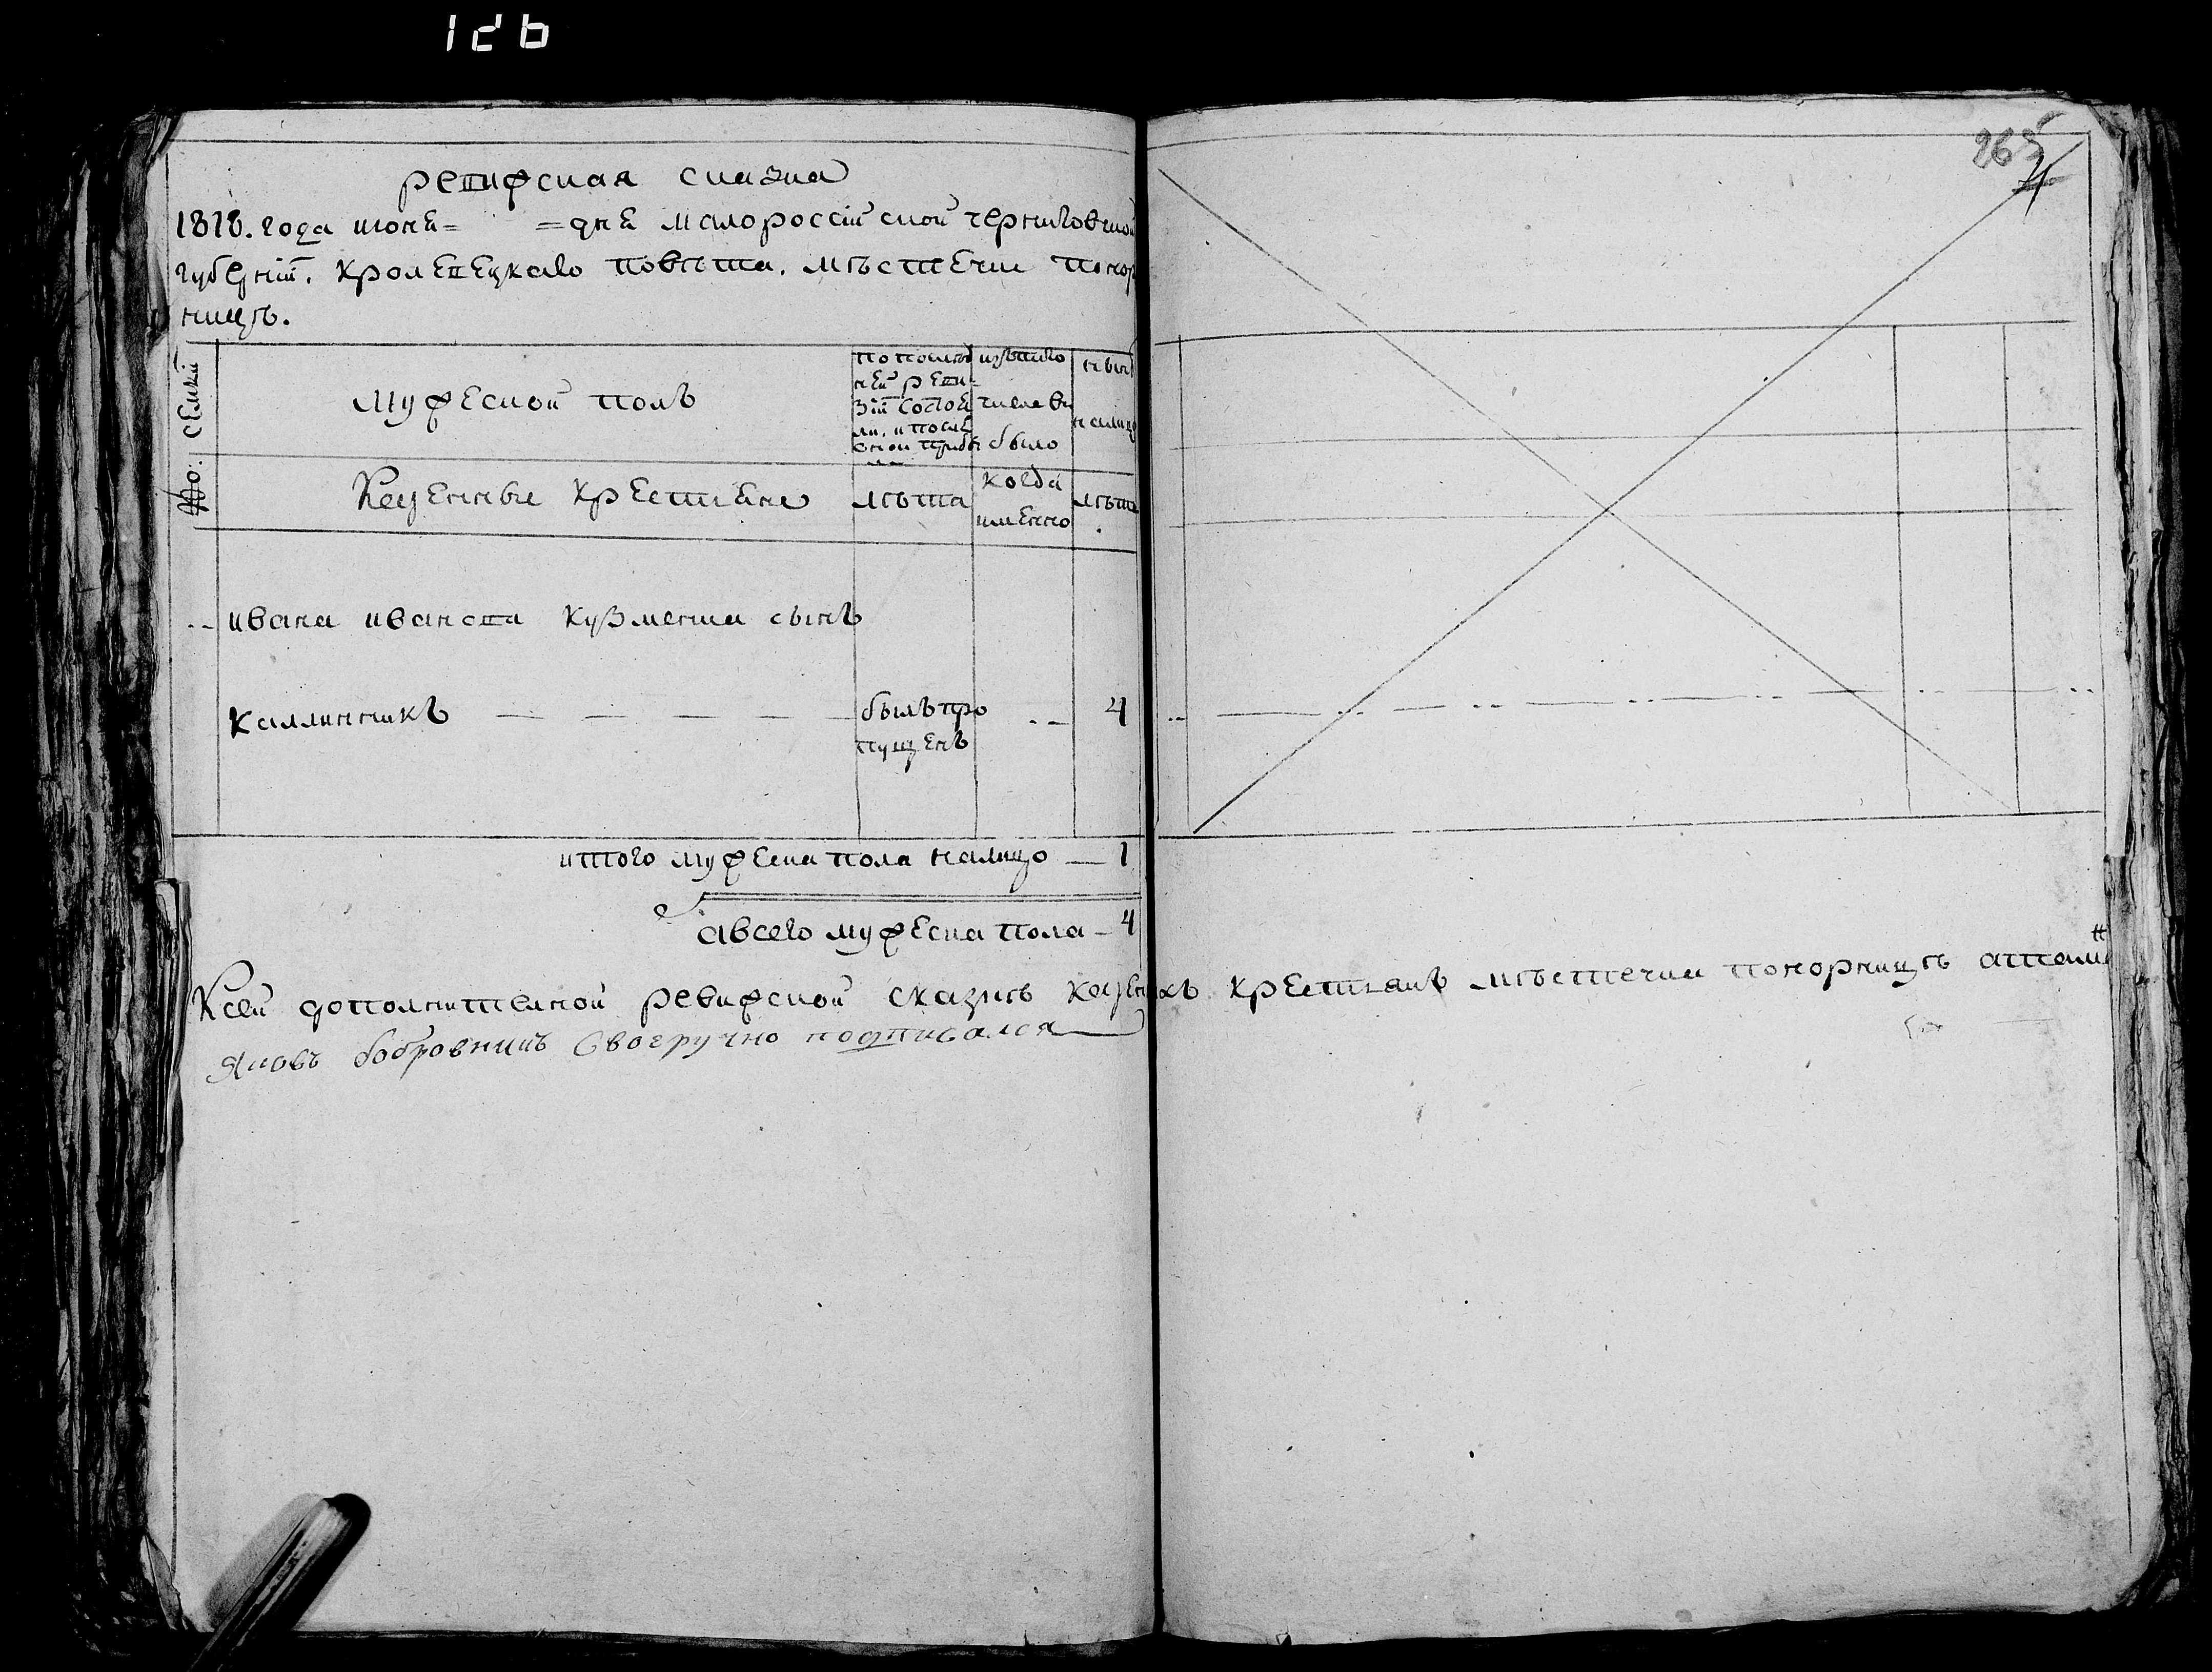 126
265
ревизская сказка
1818. года июня= =дня малороссійской черниговской
губерніи. кролевецкаго повѣта. мѣстечка понор
ницѣ.
№: семей
мужеской полъ
по послѣд
ней реви-
зіи состоя
ли, и послѣ
оной прибы
ло
изътого
числа вы
было
нынѣ
налицо
Казенные крестяне
лѣта
когда
именно
лѣта
ивана иванова кузменка сынъ
каллинникъ — — — — —
былъ про
пущенъ
4
итого мужеска пола налицо — 1
а всего мужеска пола — 4
Ксей дополнителной ревизской сказкѣ казеных крестянъ мѣстечка понорницѣ атаман
Яковъ бобровникъ Своеручно подписался